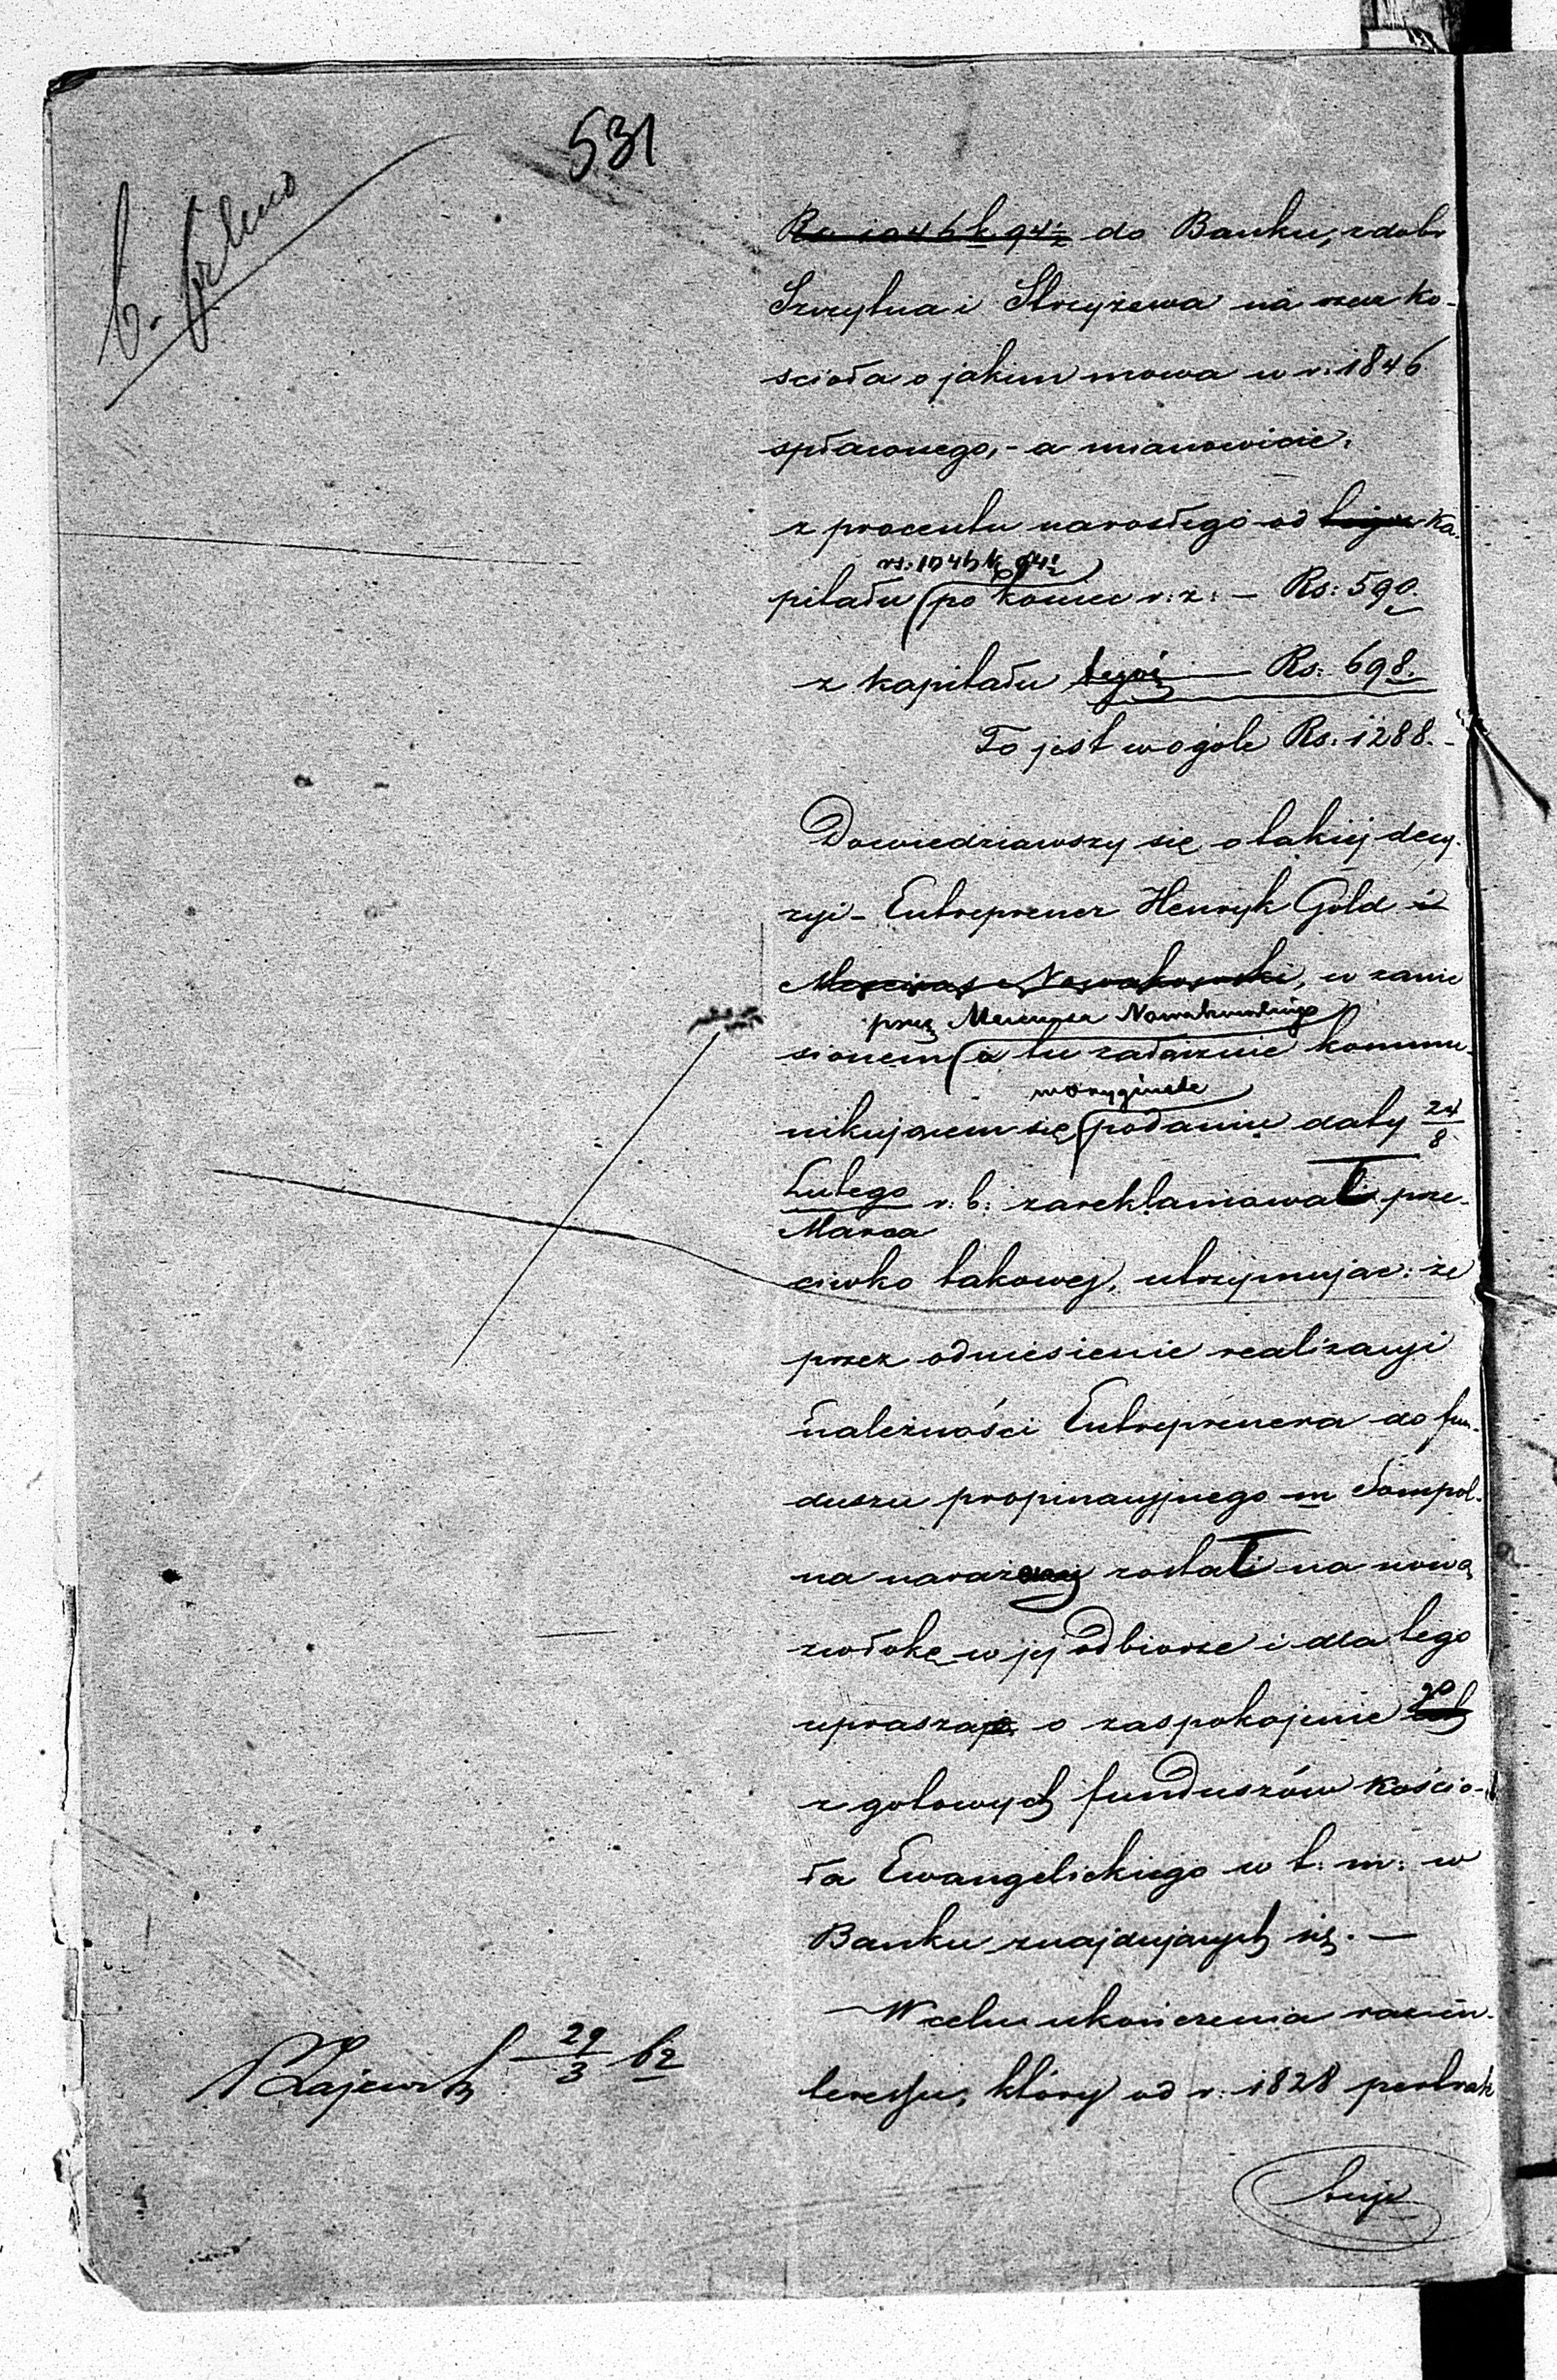 531
Rs 1046 k 94½ do Banku, z dóbr
Szczytna i Strzyżewa na rzecz ko-
ścioła o jakim mowa w r: 1846
spłaconego, - a mianowicie.
z procentu narosłego od tegoż ka-
rs: 1046 k 94½
pitału po koniec r: z: — Rs: 590.
z kapitału tegoż — Rs: 698.
To jest w ogóle Rs: 1288. -
Dowiedziawszy się o takiej decy-
zyi - Entreprener Henryk Gold i
Mecenas Nowakowski, w zanie
przez Mecenasa Nowakowskiego
sionem a tu załącznie kommu-
w oryginale
nikującem się podaniu daty 24/8
Lutego r: b: zareklamował prze-
Marca
ciwko takowej, utrzymując: że
przez odniesienie realizacyi
należności Entreprenera do fun-
duszu propinacyjnego m Sompol-
na narażony został na nową
zwłokę w jej odbiorze i dla tego
uprasza o zaspokojenie go
z gotowych funduszów Kościo-
ła Ewangelickiego w t: m: w
Banku znajdujących się. —
W celu ukończenia raz in-
teressu, który od r: 1828 pertrak
tuje
29/3 62